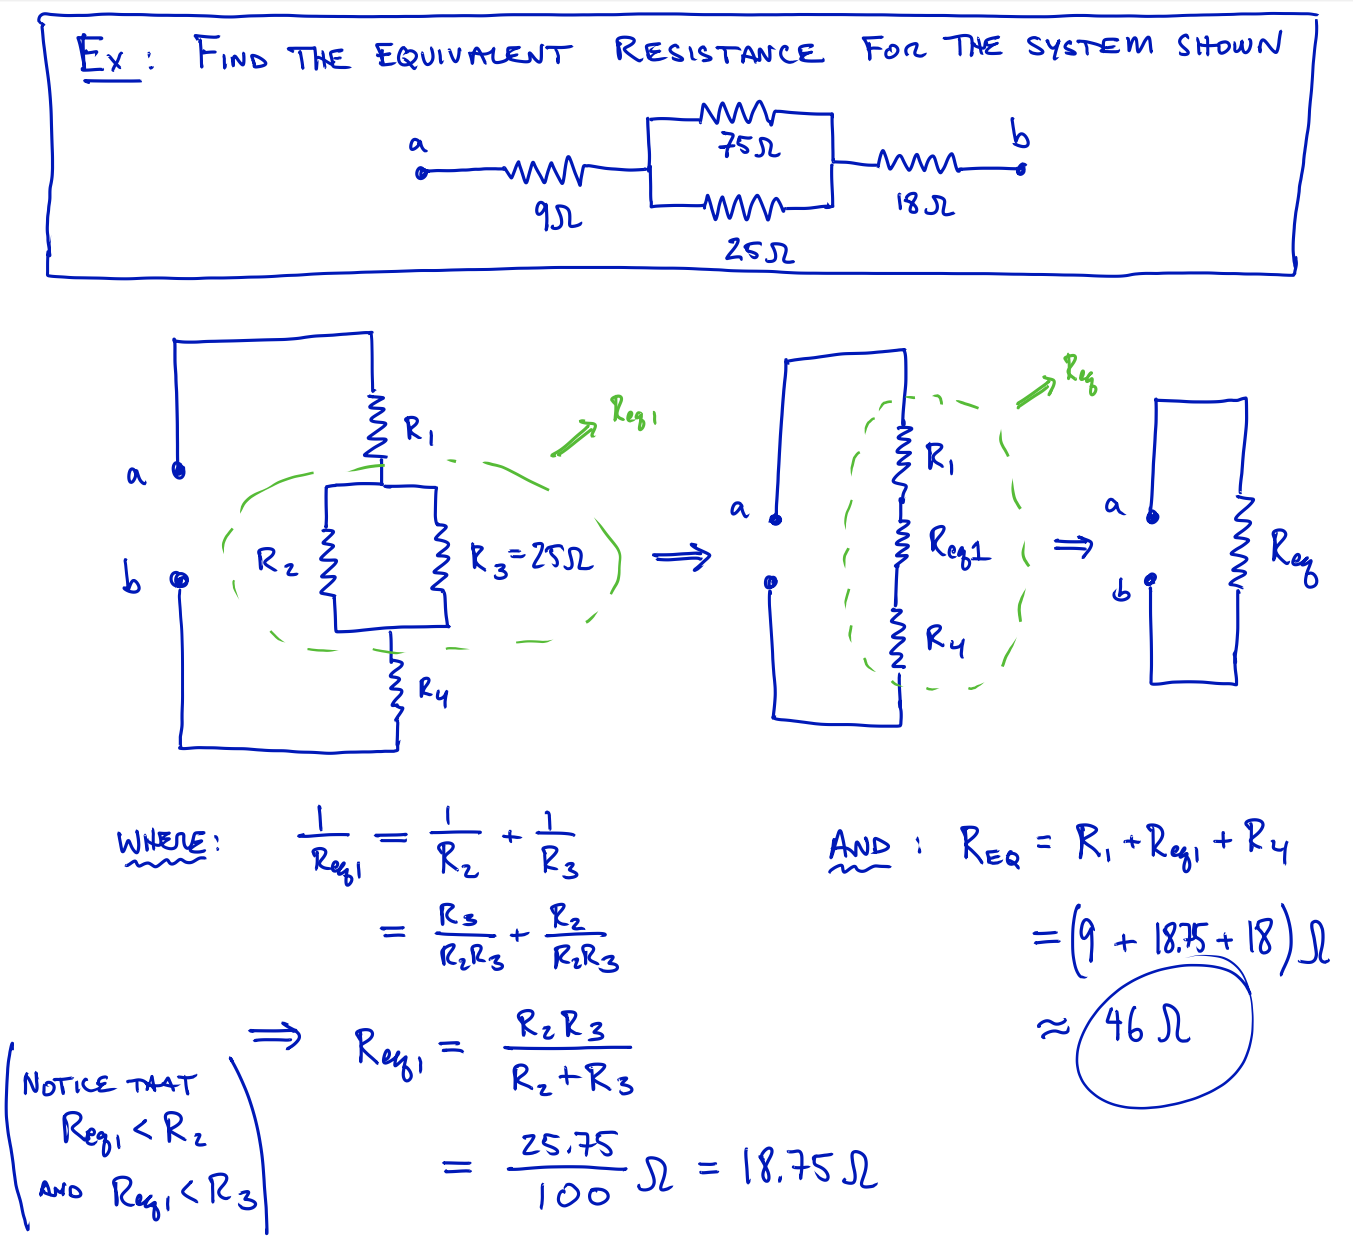 Ex: FIND THE EQUIVALENT RESISTANCE FOR THE SYSTEM SHOWN
a
75Ω
b
9Ω
18Ω
25Ω
R₁
Req₁
a
R₂
R₃=25Ω
b
R₄
⇒
Req
R₁
a
Req1
R₄
⇒
a
b
Req
WHERE: 1/Req₁ = 1/R₂ + 1/R₃
= R₃/R₂R₃ + R₂/R₂R₃
⇒ Req₁ = R₂R₃/R₂+R₃
= 25.75/100 Ω = 18.75Ω
(NOTICE THAT
Req₁ < R₂
AND Req₁ < R₃)
AND: REQ = R₁ + Req₁ + R₄
= (9 + 18.75 + 18) Ω
≈ 46 Ω